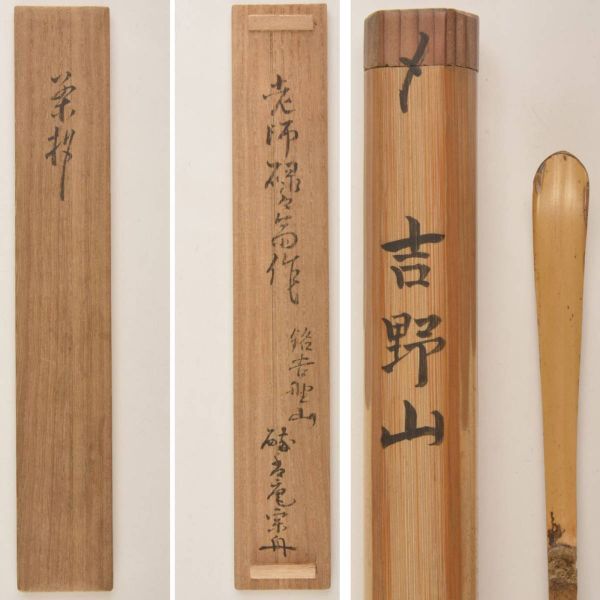 茶杓
老師碌々斎作
銘吉野山
宗舟
〆
吉野山